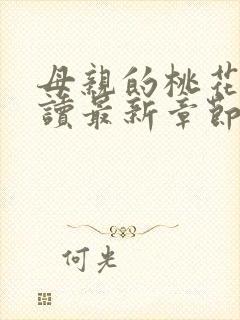 母親的桃花
讀最新章節
何光